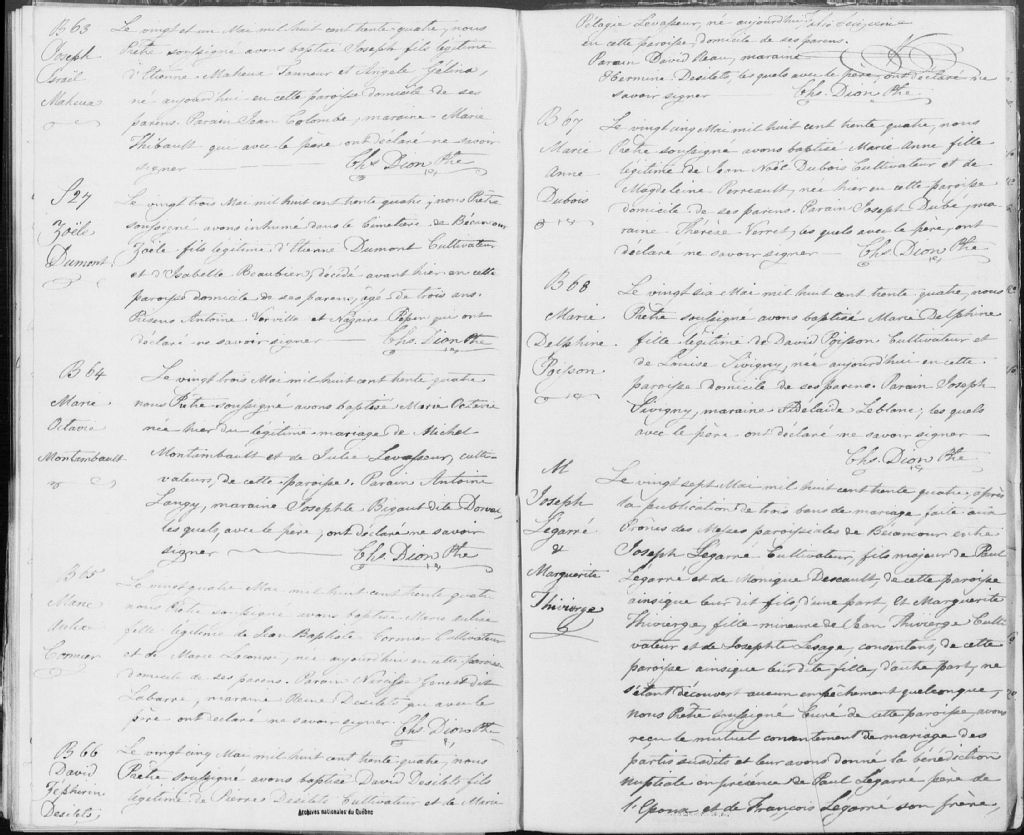 B 63
Joseph
Israil
Maheux
Le vingt et un Mai mil huit cent trente quatre, nous
Prêtre soussigné avons baptisé Joseph fils légitime
d'Etienne Maheux Tanneur et Angele Gélina,
né aujourd'hui en cette paroisse domicile de ses
parens. Parain Jean Colombe, maraine Marie
Thibault qui avec le père ont déclaré ne savoir
signer Chs. Dion Ptre
S 27
Zoële
Dumont
Le vingt trois Mai mil huit cent trente quatre, nous Prêtre
soussigné avons inhumé dans le Cimetiere de Bécancour
Zoële fils légitime d'Etienne Dumont Cultivateur
et d'Isabelle Beaubier, décédé avant hier en cette
paroisse domicile de ses parens, agé de trois ans.
Présens Antoine Verville et Nazaire Pepin qui ont
déclaré ne savoir signer Chs. Dion Ptre
B 64
Marie
Octavie
Montambault
Le vingt trois Mai mil huit cent trente quatre
nous Prêtre soussigné avons baptisé Marie Octavie
née hier du légitime mariage de Michel
Montambault et de Julie Levasseur, culti-
vateurs, de cette paroisse. Parain Antoine
Langy, maraine Josephte Bigaut dite Dorval,
lesquels, avec le père, ont déclaré ne savoir
signer Chs. Dion Ptre
B 65
Marie
Julie
Cormier
Le vingt quatre Mai mil huit cent trente quatre
nous Prêtre soussigné avons baptisé Marie
fille légitime de Jean Baptiste Cormier Cultivateur
et de Marie née aujourd'hui en cette paroisse
domicile de ses parens. Parain dit
Labarre, maraine Reine Desilets qui avec le
père ont déclaré ne savoir signer Chs Dion Ptre
B 66
David
Zephirin
Desilets
Le vingt cinq Mai mil huit cent trente quatre, nous
Prêtre soussigné avons baptisé David Desilets fils
légitime de Pierre Desilets Cultivateur et de Marie
Archives nationales du Québec
Pélagie Levasseur, né aujourd'hui
en cette paroisse, domicile de ses parens.
Parain David maraine
Hermine Desilets, lesquels avec le père, ont déclaré ne
savoir signer Chs. Dion Ptre
B 67
Marie
Anne
Dubois
Le vingt cinq Mai mil huit cent trente quatre, nous
Prêtre soussigné avons baptisé Marie Anne fille
légitime de Jean Noël Dubois Cultivateur et de
Magdeleine Perreault, née hier en cette paroisse
domicile de ses parens. Parain Joseph Dubé, ma-
raine Thérèse Verret, lesquels avec le père, ont
déclaré ne savoir signer Chs. Dion Ptre
B 68
Marie
Delphine
Poisson
Le vingt six Mai mil huit cent trente quatre, nous
Prêtre soussigné avons baptisé Marie Delphine
fille légitime de David Poisson Cultivateur et
de Louise Sivigny, née aujourd'hui en cette
paroisse domicile de ses parens. Parain Joseph
Sivigny, maraine Adelaide Leblanc; lesquels
avec le père ont déclaré ne savoir signer
Chs. Dion Ptre
M
Joseph
Légarré
&
Marguerite
Thivierge
Le vingt sept Mai mil huit cent trente quatre, après
la publication de trois bans de mariage faite aux
Prônes des Messes paroissiales de Bécancour entre
Joseph Légarré Cultivateur, fils majeur de Paul
Legarré et de Monique Descault, de cette paroisse
ainsique leur dit fils, d'une part, Et Marguerite
Thivierge, fille mineure de Jean Thivierge Culti-
vateur et de Josephte Lesage, consentans, de cette
paroisse ainsique leur dite fille, d'autre part, ne
s'étant découvert aucun empêchement quelconque,
nous Prêtre soussigné Curé de cette paroisse, avons
reçu le mutuel consentement de mariage des
partis susdits et leur avons donné la bénédiction
nuptiale en présence de Paul Legarré père de
l'Epoux et de François Légarré son frère,